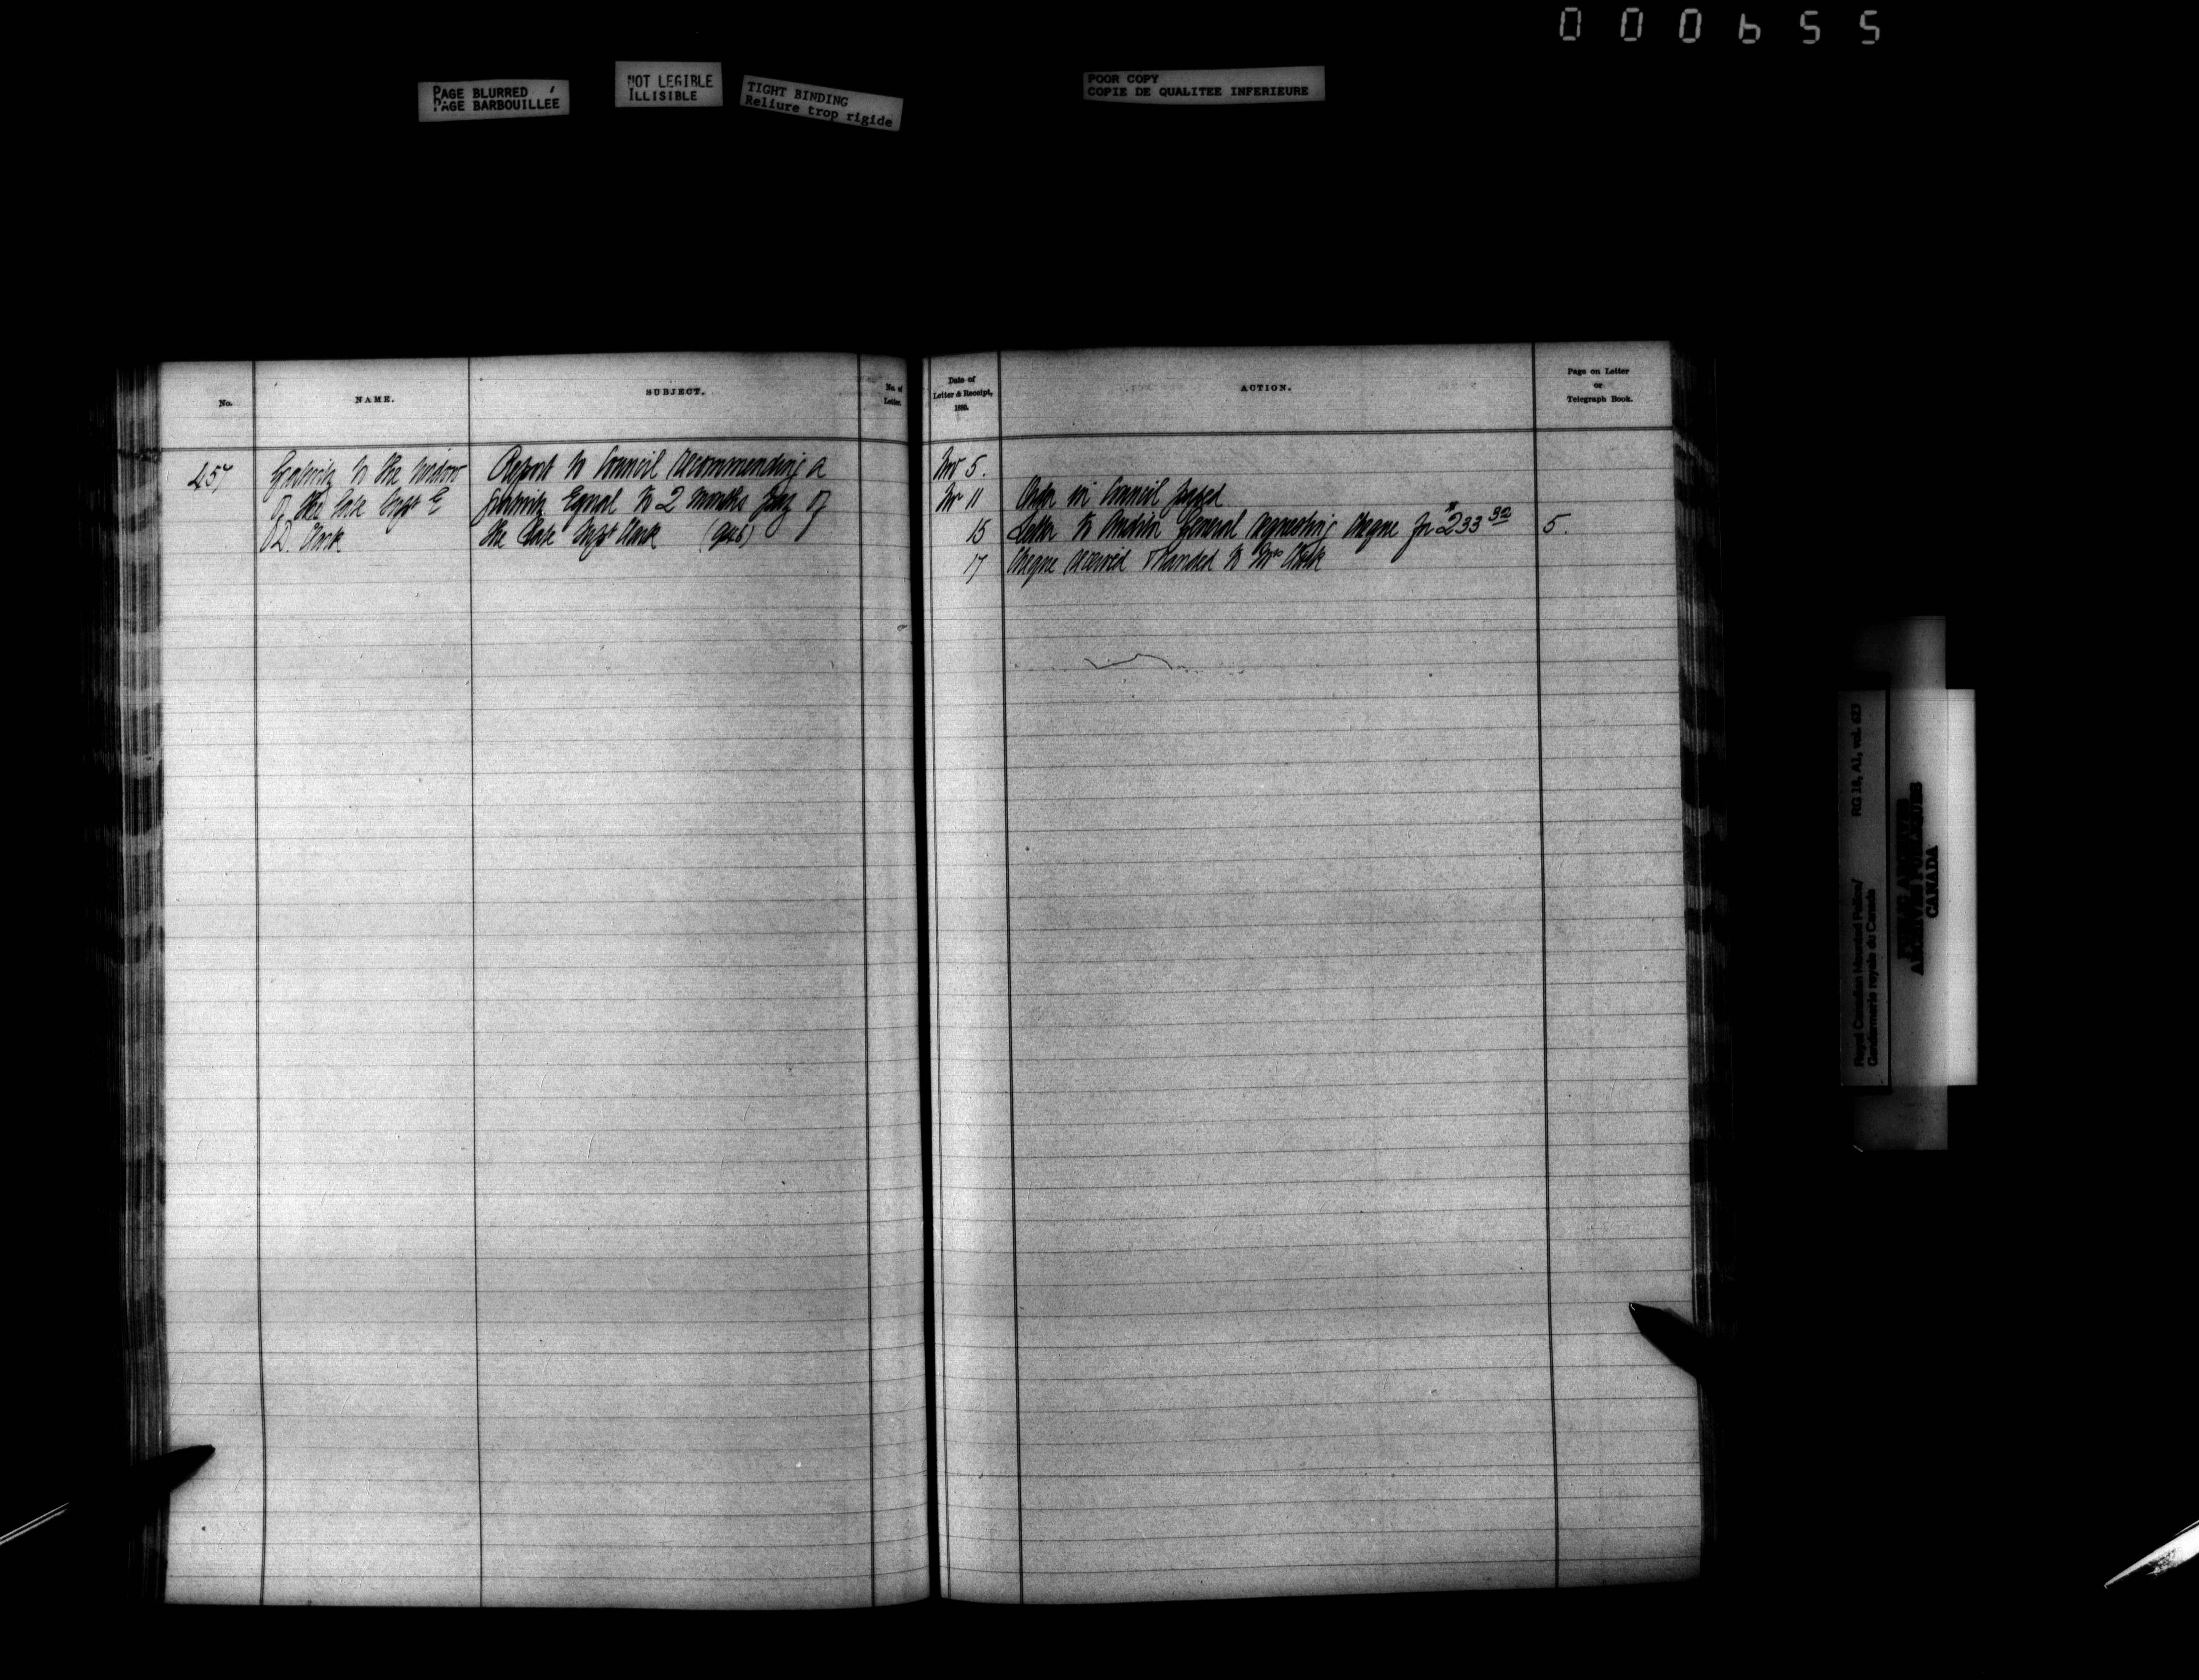 000655
PAGE BLURRED
PAGE BARBOUILLEE
NOT LEGIBLE
ILLISIBLE
TIGHT BINDING
Reliure trop rigide
POOR COPY
COPIE DE QUALITEE INFERIEURE
No.
NAME.
SUBJECT.
No. of
Letter.
457
Gratuity to the widow
of the late Supt E
D. Clark
Report to Council recommending a
gratuity Equal to 2 months pay of
the late Supt Clark (946)
Date of
Letter & Receipt,
188
ACTION.
Page on Letter
or
Telegraph Book.
Nov 5.
Nov 11 Order in Council passed
15 Letter to Auditor General requesting cheque for $233 32 5.
17 Cheque received & handed to Mrs Clark
Royal Canadian Mounted Police/
Gendarmerie royale du Canada
RG 18, A1, vol. 623
ARCHIVES PUBLIQUES
CANADA